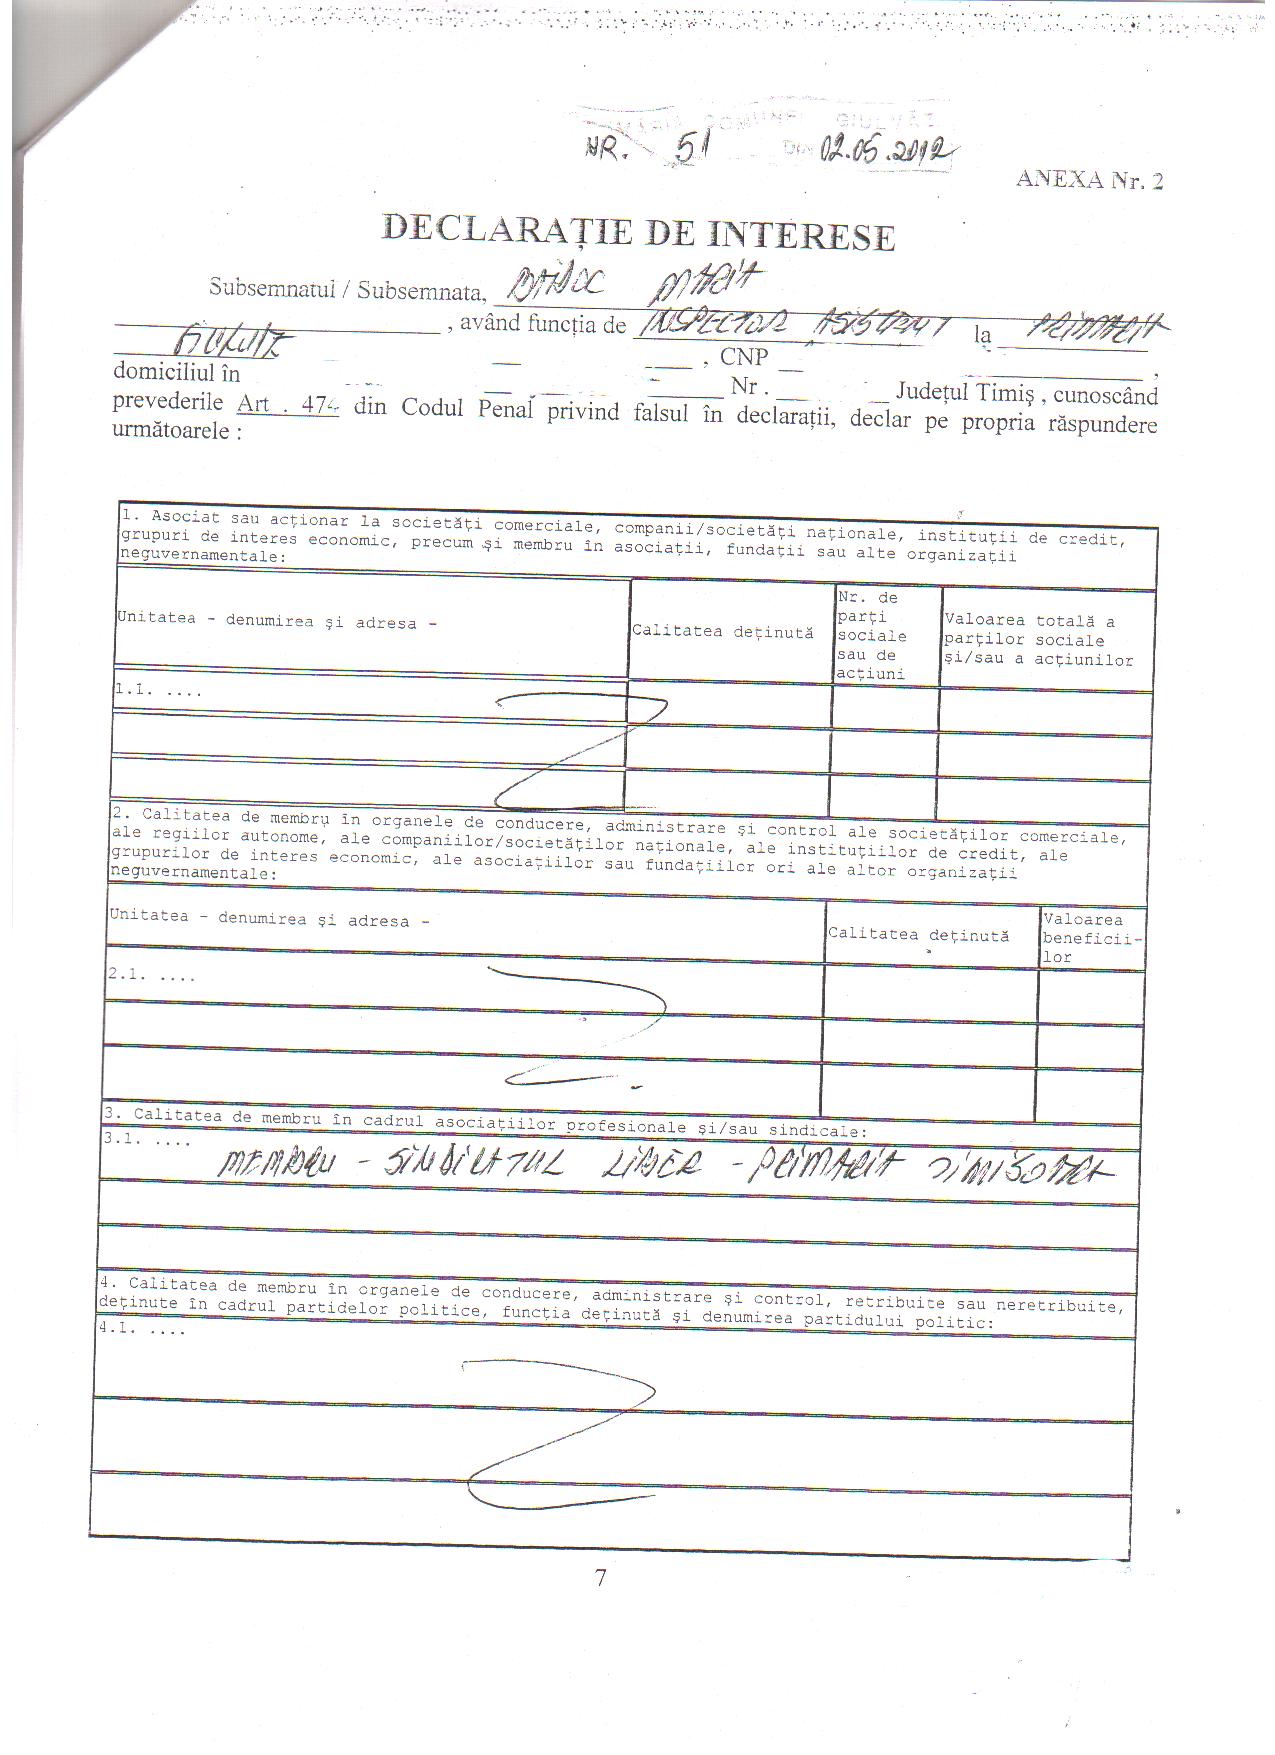 PRIMĂRIA COMUNEI GIULVĂZ
NR. 51 Din 02.05.2012
ANEXA Nr. 2
DECLARAŢIE DE INTERESE
Subsemnatul / Subsemnata, MARIA
, având funcţia de INSPECTOR ASISTENT la PRIMARIA
GIULVAZ , CNP ,
domiciliul în Nr . Judeţul Timiş , cunoscând
prevederile Art . 474 din Codul Penal privind falsul în declaraţii, declar pe propria răspundere
următoarele :
1. Asociat sau acţionar la societăţi comerciale, companii/societăţi naţionale, instituţii de credit,
grupuri de interes economic, precum şi membru în asociaţii, fundaţii sau alte organizaţii
neguvernamentale:
Unitatea - denumirea şi adresa -
Calitatea deţinută
Nr. de
parţi
sociale
sau de
acţiuni
Valoarea totală a
parţilor sociale
şi/sau a acţiunilor
1.1. ....
2. Calitatea de membru în organele de conducere, administrare şi control ale societăţilor comerciale,
ale regiilor autonome, ale companiilor/societăţilor naţionale, ale instituţiilor de credit, ale
grupurilor de interes economic, ale asociaţiilor sau fundaţiilor ori ale altor organizaţii
neguvernamentale:
Unitatea - denumirea şi adresa -
Calitatea deţinută
Valoarea
beneficii-
lor
2.1. ....
3. Calitatea de membru în cadrul asociaţiilor profesionale şi/sau sindicale:
3.1. ....
MEMBRU - SINDICATUL LIBER - PRIMARIA TIMISOARA
4. Calitatea de membru în organele de conducere, administrare şi control, retribuite sau neretribuite,
deţinute în cadrul partidelor politice, funcţia deţinută şi denumirea partidului politic:
4.1. ....
7